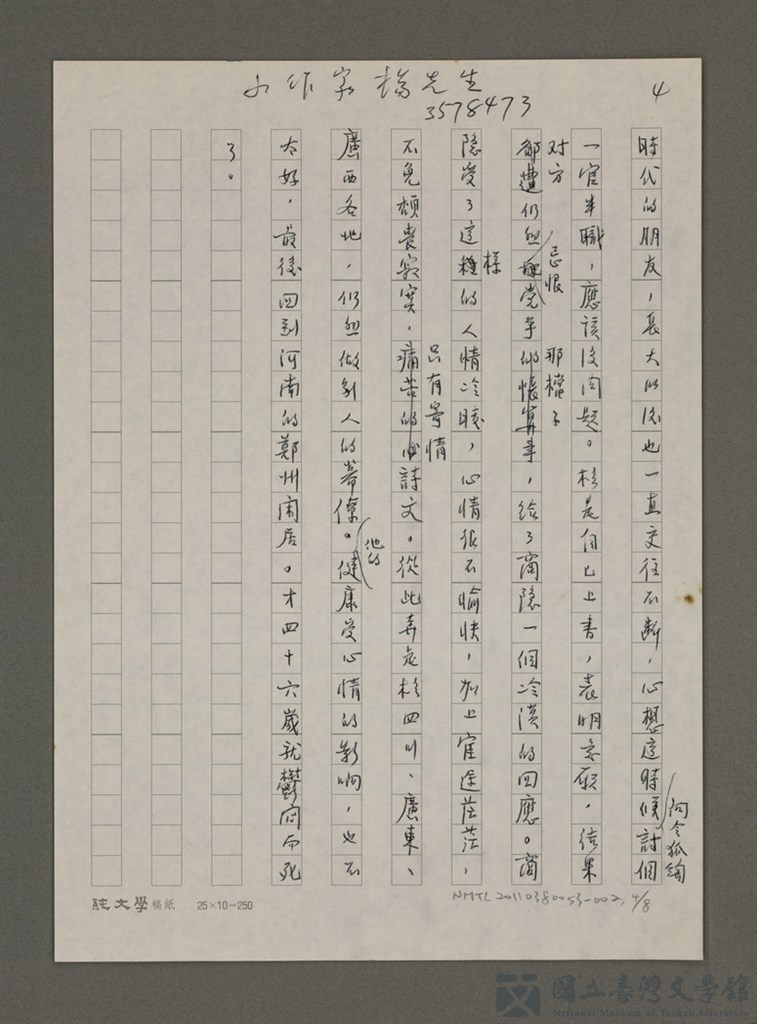 4
小作家 楊先生
3578473
時代的朋友，長大以後也一直交往不斷，心想這時候討個
向令狐綯
一官半職，應該沒問題。於是自己上書，表明意願，結果
对方
忌恨
那檔子
都遭仍然黨爭的帳算事，給了商隱一個冷漠的回應。商
隱受了這種的人情冷暖，心情很不愉快，加上宦途茫茫，
樣
不免頹喪寂寞，痛苦的詩文。從此奔走於四川、廣東、
只有寄情
廣西各地，仍然做別人的幕僚。健康受心情的影响，也不
他的
太好，最後回到河南的鄭州閑居。才四十六歲就鬱悶而死
了。
純文學稿紙 25×10-250
NMTL20110380053-002, 4/8
國立臺灣文學館
National Museum of Taiwan Literature